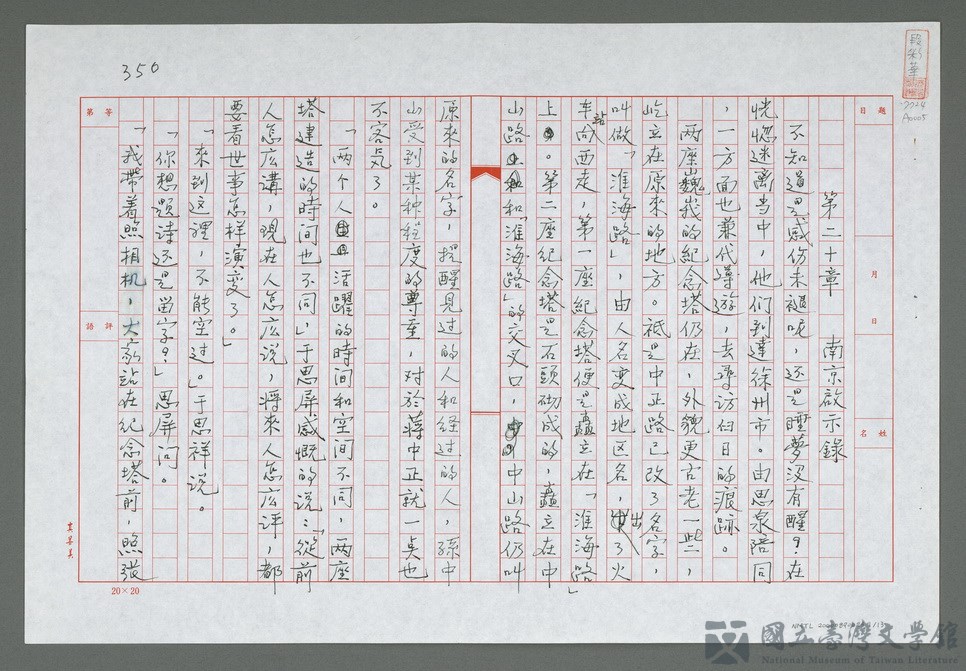 350
段彩華
題目
月 日
姓名
等第
評語
第二十章 南京啟示錄
不知道是感伤未褪呢，还是睡夢没有醒？在
恍惚迷离当中，他们到達徐州市。由思泉陪同
，一方面也兼代導游，去尋访旧日的痕跡。
两座巍峩的紀念塔仍在，外貌更古老一些，
屹立在原來的地方。祗是中正路已改了名字，
叫做「淮海路」，由人名变成地区名，出了火
车站向西走，第一座紀念塔便是矗立在「淮海路」
上。第二座紀念塔是石頭砌成的，矗立在中
山路和「淮海路」的交叉口，中山路仍叫
原來的名字，提醒見过的人和经过的人，孫中
山受到某种程度的尊重，对於蒋中正就一点也
不客気了。
「两个人活躍的時间和空间不同，两座
塔建造的時间也不同，」于思屏感慨的说：「從前
人怎広講，現在人怎広说，将來人怎広评，都
要看世事怎样演变了。」
「來到这裡，不能空过。」于思祥说。
「你想题诗还是留字？」思屏问。
「我带着照相机，大家站在紀念塔前，照張
20×20
國立臺灣文學館
National Museum of Taiwan Literature